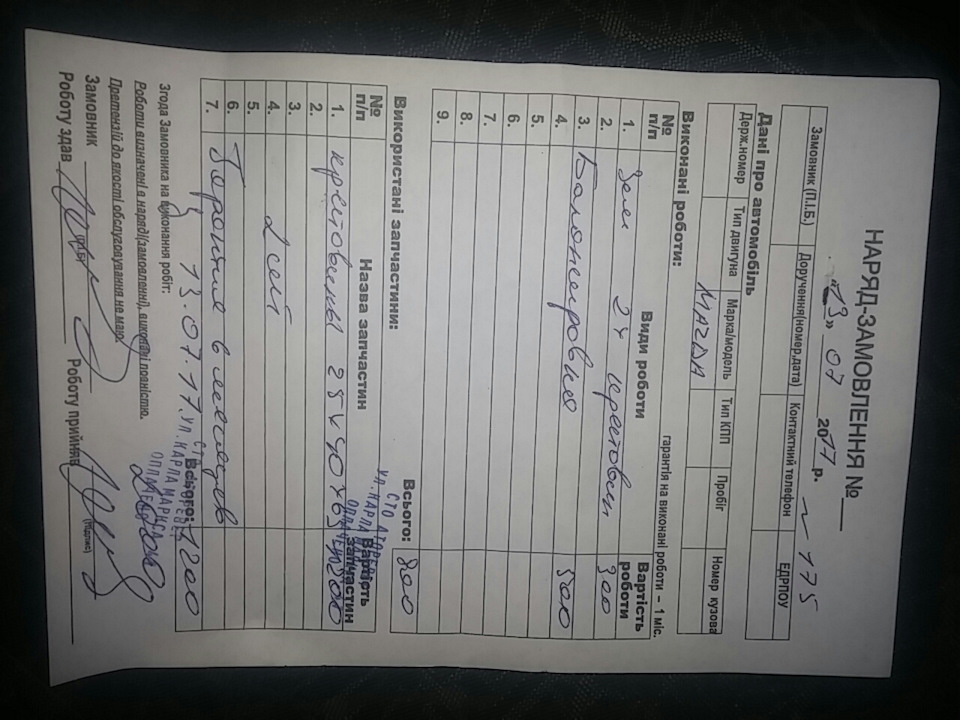 НАРЯД-ЗАМОВЛЕННЯ №
«13» 07 2017 р. ~ 175
Замовник (П.І.Б.) Доручення(номер,дата) Контактний телефон ЕДРПОУ
Дані про автомобіль
Держ.номер Тип двигуна Марка/модель Тип КПП Пробіг Номер кузова
МАЗДА
Виконані роботи: гарантія на виконані роботи – 1 міс.
№ п/п Види роботи Вартість роботи
1. 2х крестовин 300
2.
3. 500
4.
5.
6.
7.
8.
9.
Всього: 800
Використані запчастини:
№ п/п Назва запчастин Вартість запчастин
1. крестовины 25 х 40 х 63
2.
3. 2 сет
4.
5.
6. Гарантия 6 месяцев
7.
Всього: 1200
СТО
УЛ.КАРЛА МАРКСА
ОПЛАЧЕНО
13.07.17
Згода Замовника на виконання робіт:
Роботи визначені в наряді(замовленні), виконані повністю.
Претензій до якості обслуговування не маю.
Замовник (П.І.Б) (підпис)
Роботу здав Роботу прийняв